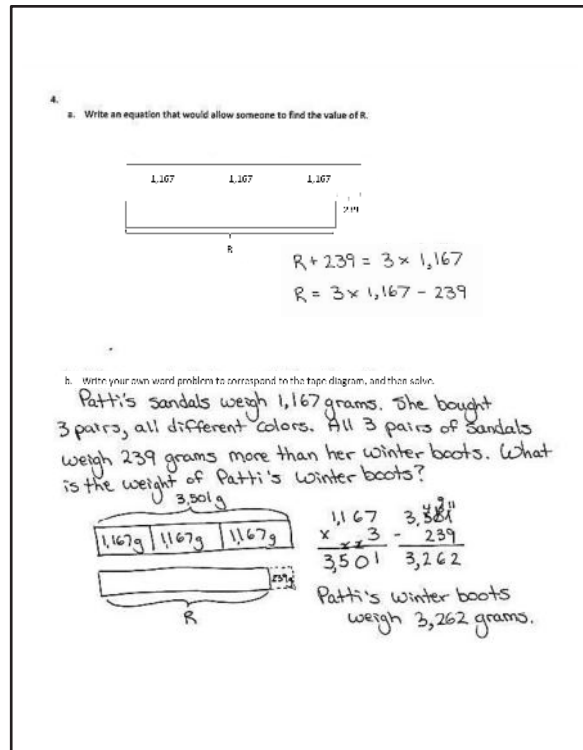 4.
a. Write an equation that would allow someone to find the value of R.
1,167 1,167 1,167
239
R
R + 239 = 3 × 1,167
R = 3 × 1,167 - 239
b. Write your own word problem to correspond to the tape diagram, and then solve.
Patti's sandals weigh 1,167 grams. She bought
3 pairs, all different colors. All 3 pairs of sandals
weigh 239 grams more than her winter boots. What
is the weight of Patti's winter boots?
3,501g
1,167g 1,167g 1,167g
239g
R
1,167
× 3
3,501
3,501
- 239
3,262
Patti's winter boots
weigh 3,262 grams.